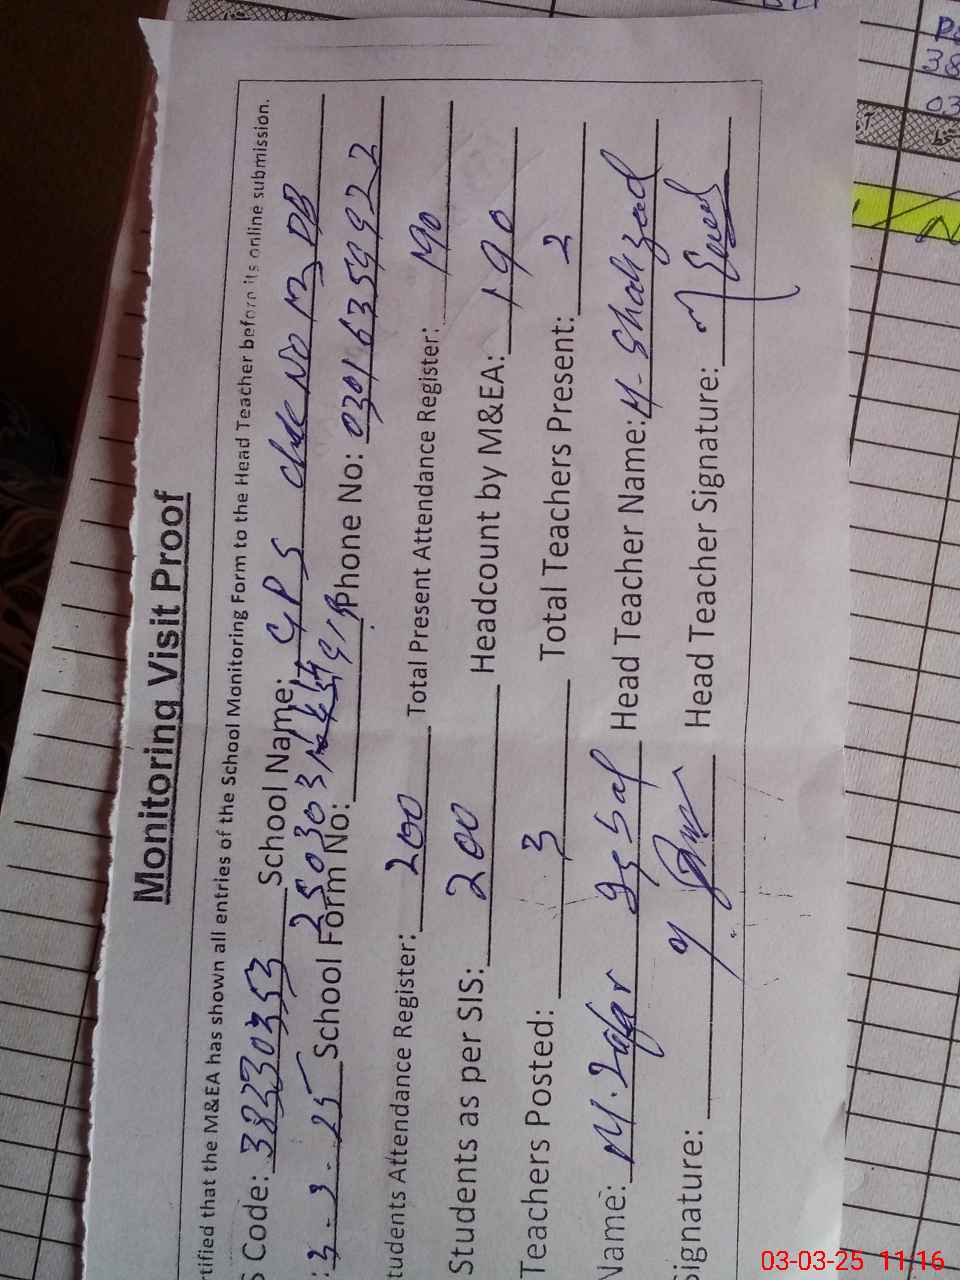 Monitoring Visit Proof
rtified that the M&EA has shown all entries of the School Monitoring Form to the Head Teacher before its online submission.
S Code: 38330353 School Name: GPS chak No 13 DB
: 3-3-25 School Form No: 250303 Phone No: 03016359922
tudents Attendance Register: 200 Total Present Attendance Register: 190
Students as per SIS: 200 Headcount by M&EA: 190
Teachers Posted: 3 Total Teachers Present: 2
Name: M. Zafar Head Teacher Name: M. Shahzad
Signature: Head Teacher Signature:
03-03-25 11:16